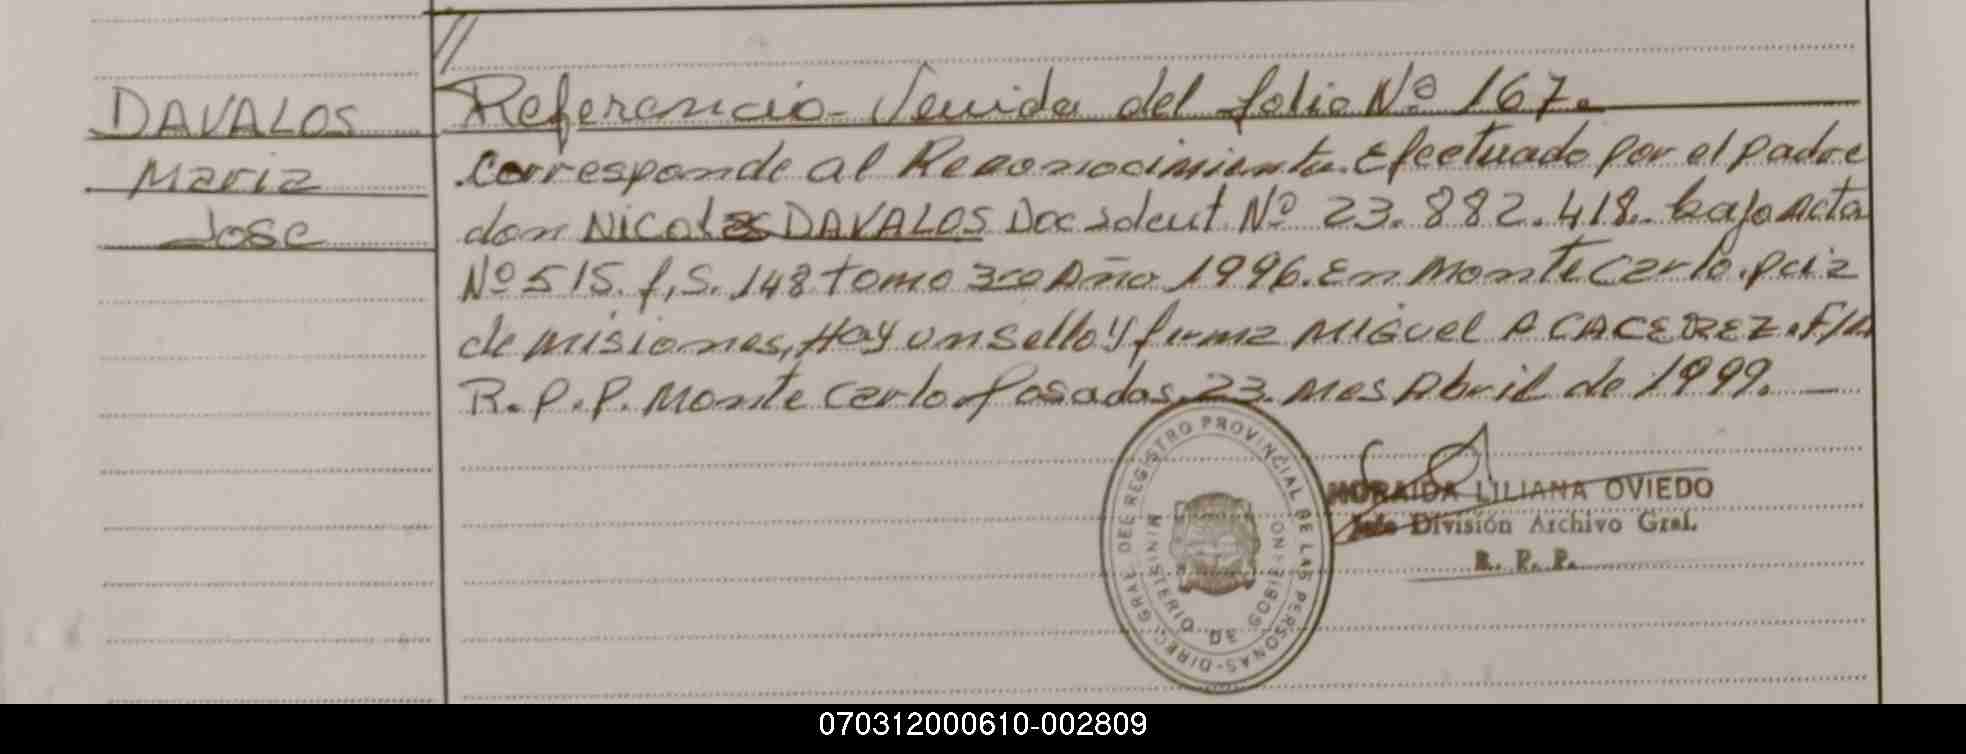 //
DAVALOS
Maria
Jose
Referencia - Venida del folio Nº 167.
Corresponde al Reconocimiento. Efectuado por el padre
don NICOLAS DAVALOS Doc Ident. Nº 23.882.418. bajo Acta
Nº 515. f,S. 148 tomo 3ro Año 1996. En Monte Carlo. pcia
de misiones, Hay un sello y firma MIGUEL A CACEREZ.
R.P.P. Monte Carlo. Posadas, 23. mes Abril de 1999.
DIREC. GRAL. DEL REGISTRO PROVINCIAL DE LAS PERSONAS
MINISTERIO DE GOBIERNO
NORAIDA LILIANA OVIEDO
Jefe División Archivo Gral.
R. P. P.
070312000610-002809